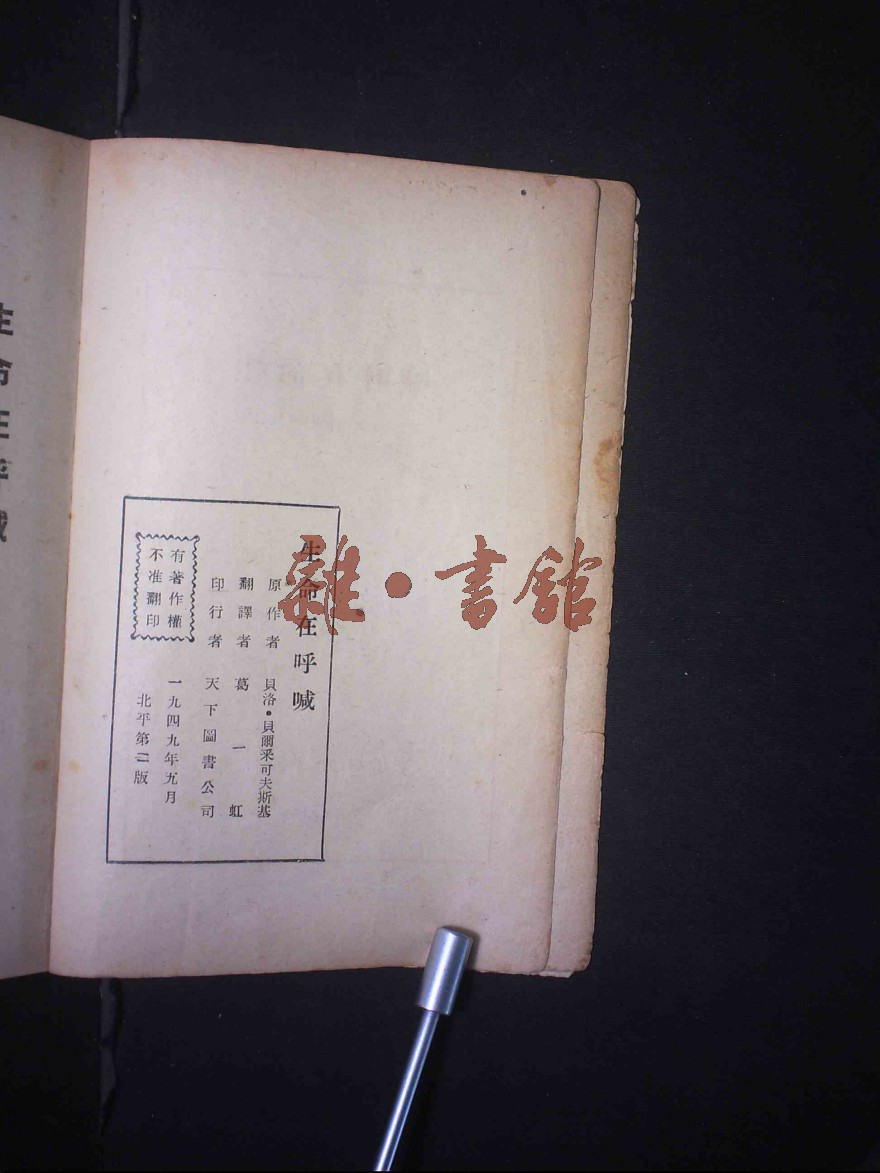 生命在呼喊
原作者 貝洛·貝爾采可夫斯基
翻譯者 葛一虹
印行者 天下圖書公司
有著作權
不准翻印
一九四九年五月
北平第二版
雜·書館
生命在呼喊